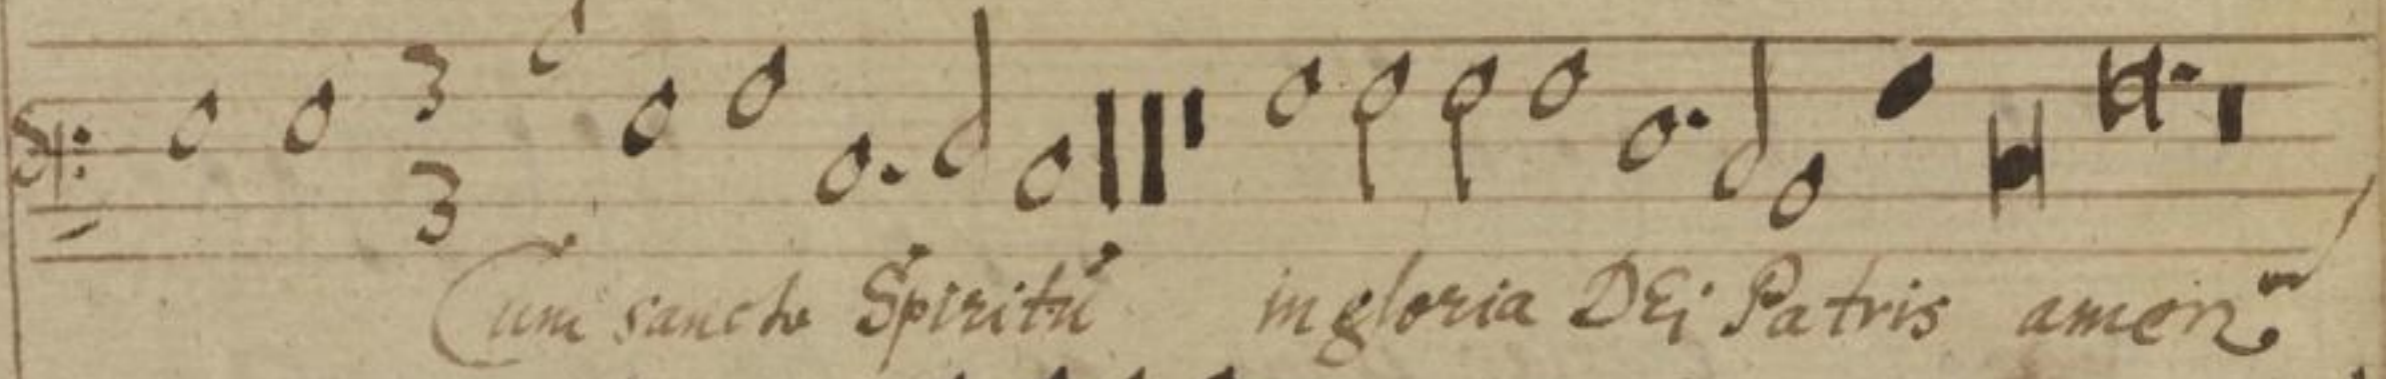 3
3
Cum sancto Spiritu in gloria DEi Patris amen